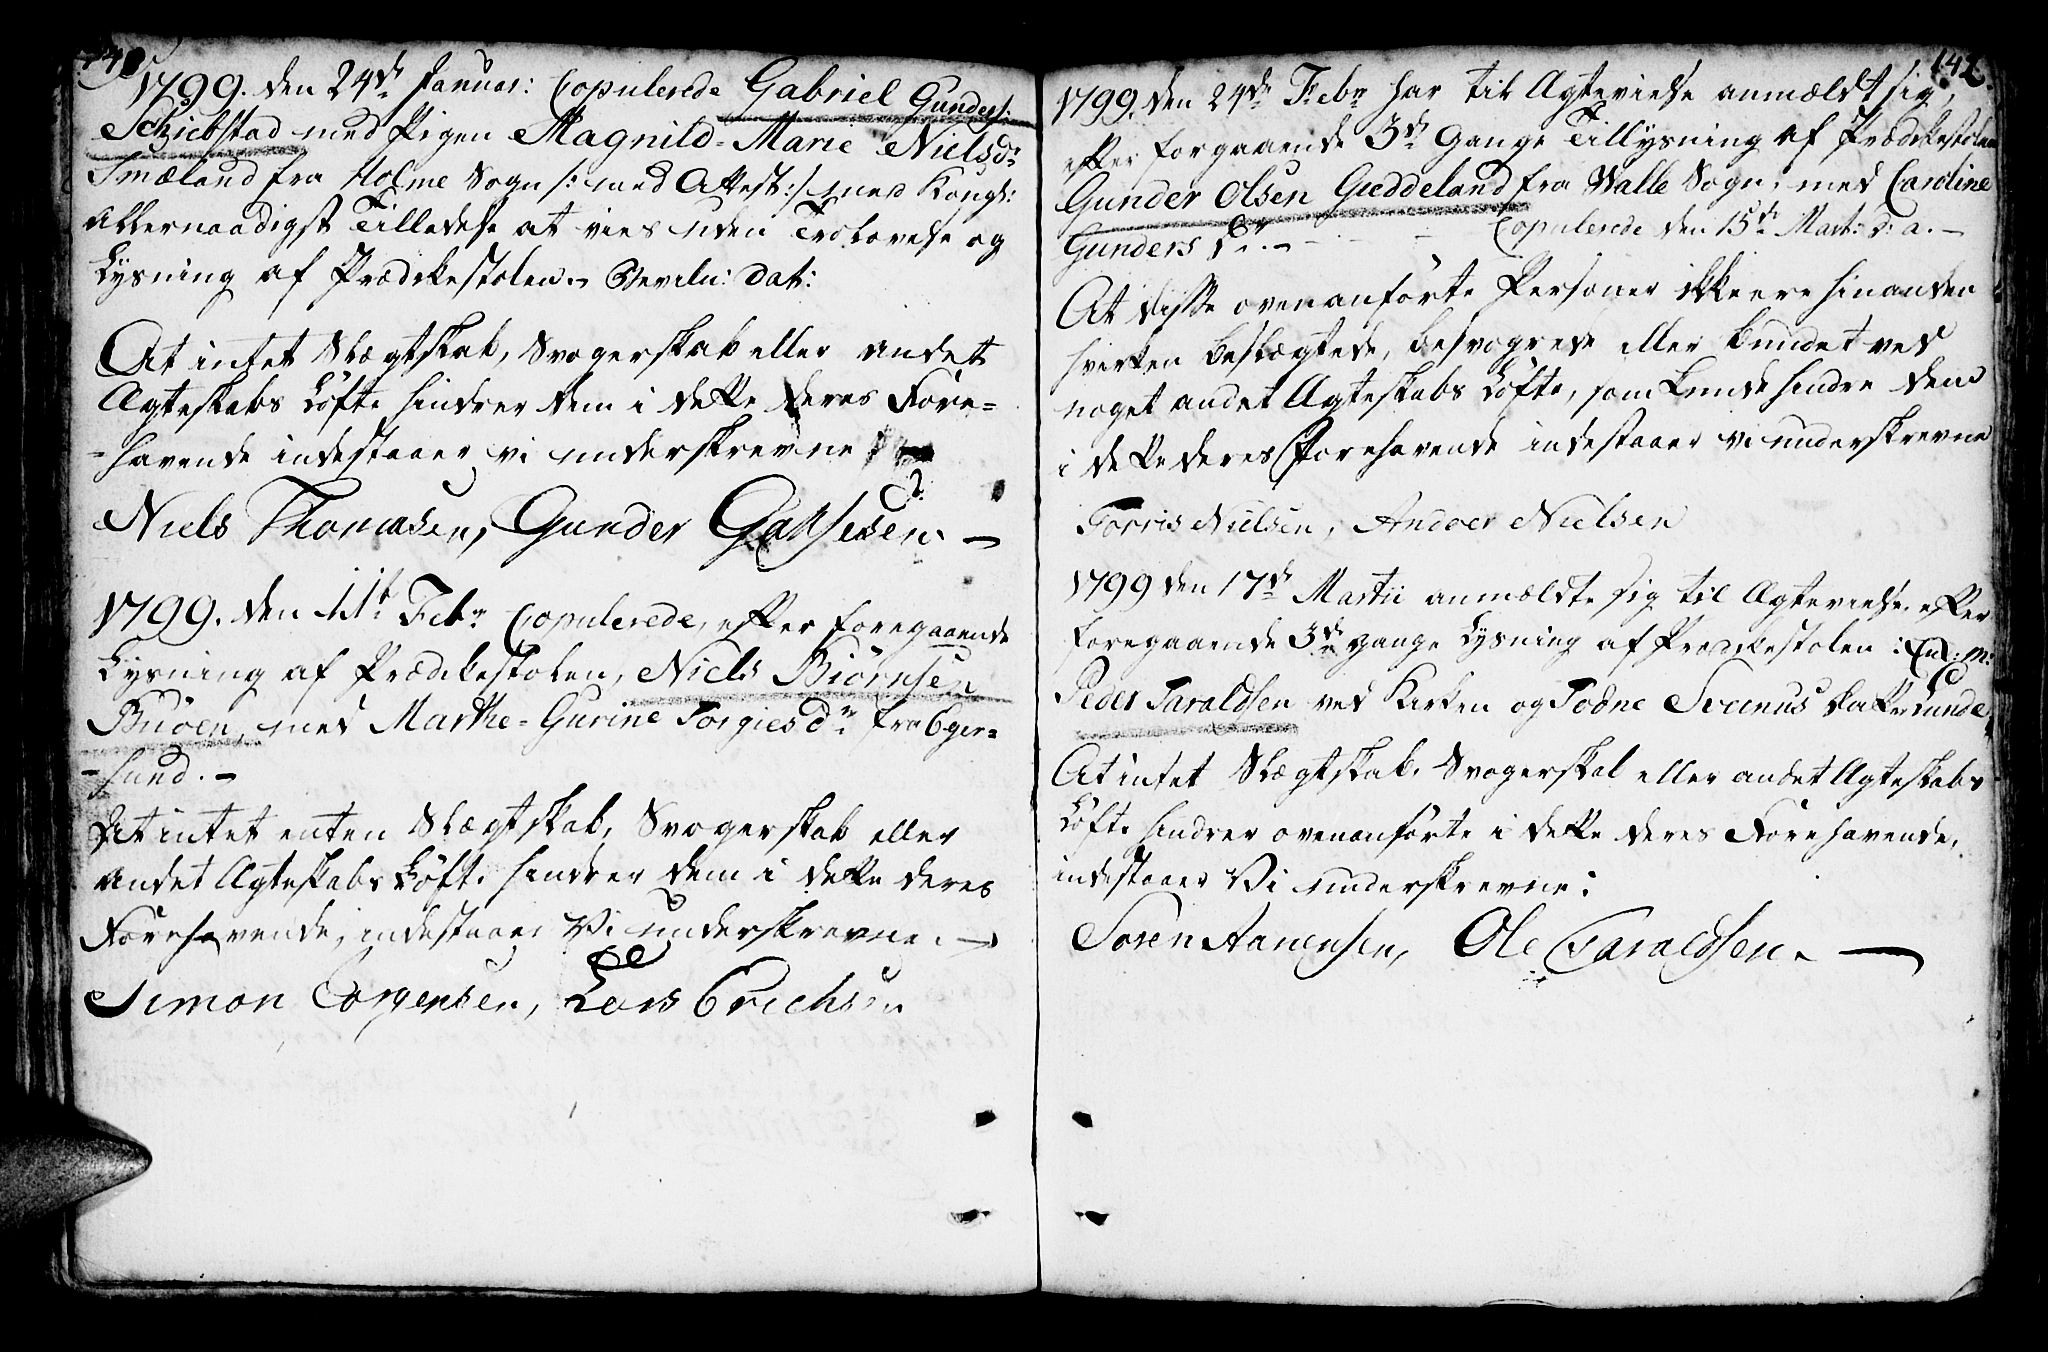 140
1799. den 24de Januar: Copulerede Gabriel Gunders:
Schiebstad med Pigen Magnild-Marie Nielsdr
Smæland fra Holme Sogn /: med Attest :/ med Kongl:
Allernaadigst Tilladelse at vies uden Trolovelse og
Lysning af Prædikestolen.
At intet Slægtskab, Svogerskab eller andet
Ægteskabs Løfte hindrer dem i dette deres Fore=
=havende indestaaer vi underskrevne
Niels Thomasen, Gunder
1799. den 11te Febr Copulerede, efter foregaaende
Lysning af Prædikestolen, Niels Biørnsen
Buøen, med Marthe-Gurine Torgiesdr fra Eger=
=sund.-
At intet enten Slægtskab, Svogerskab eller
andet Ægteskabs Løfte hindrer dem i dette deres
Forehavende, indestaaer Vi underskrevne.
Simon Torgensen, Lars Erichsen
141
1799. den 24de Febr har til Ægtevielse anmældt sig,
efter forgaaende 3de Gange Tillysning af Prædikestolen
Gunder Olsen Guddeland fra Walle Sogn, med Caroline
Gunders Dr.- Copulerede den 15de Mart: d: a.-
At disse ovenanførte Personer ikke ere hinanden
hverken beslægtede, besvogrede eller bundet ved
noget andet Ægteskabs Løfte, som kunde hindre dem
i dette deres Forehavende indestaaer vi underskrevne
Torris Nielsen, Andoer Nielsen
1799 den 17de Martii anmældte sig til Ægtevielse efter
foregaaende 3de gange Lysning af Prædikestolen
Peder Taraldsen ved Kirken og Todne Svenus datter Lunde
At intet Slægtskab, Svogerskab eller andet Ægteskabs
Løfte hindrer ovenanførte i dette deres Forehavende,
indestaaer Vi underskrevne:
Soren Aanensen, Ole Taraldsen.